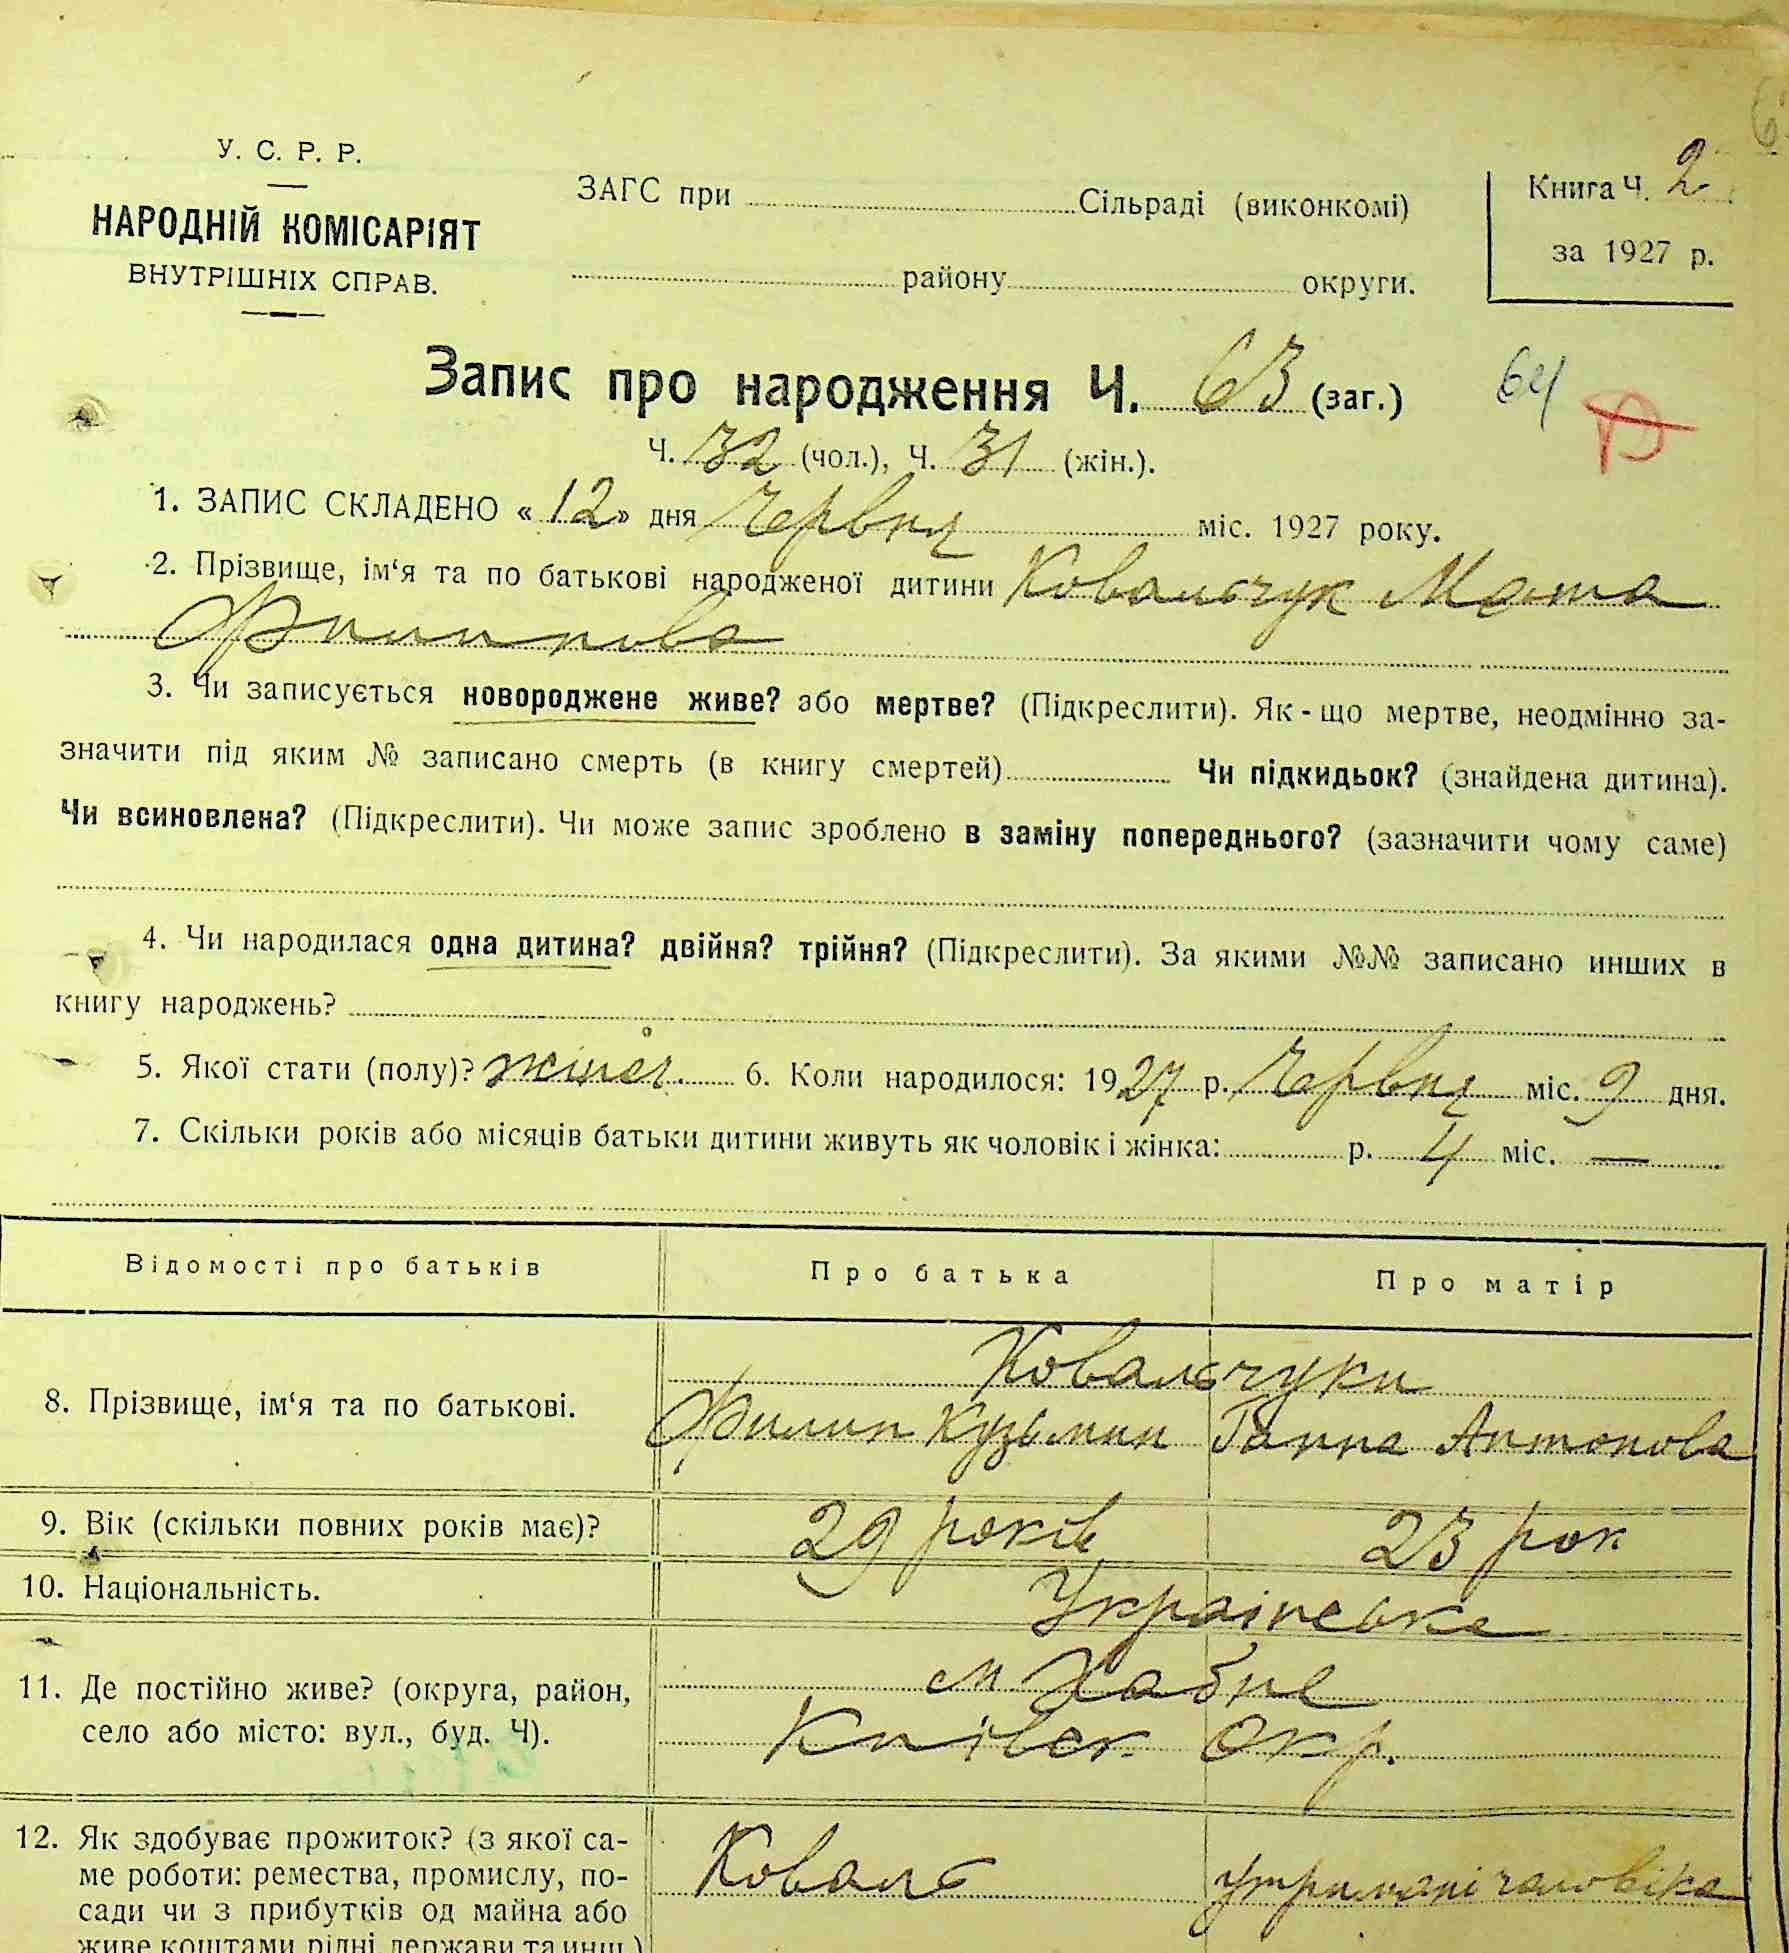 У. С. Р. Р.
НАРОДНІЙ КОМІСАРІЯТ
ВНУТРІШНІХ СПРАВ.
ЗАГС при Сільраді (виконкомі)
району округи.
Книга Ч. 2
за 1927 р.
Запис про народження Ч. 63 (заг.)
64
Ч. 32 (чол.), Ч. 31 (жін.).
1. ЗАПИС СКЛАДЕНО « 12 » дня Червня міс. 1927 року.
2. Прізвище, ім‘я та по батькові народженої дитини Ковальчук
Филипова
3. Чи записується новороджене живе? або мертве? (Підкреслити). Як - що мертве, неодмінно за-
значити під яким № записано смерть (в книгу смертей) Чи підкидьок? (знайдена дитина).
Чи всиновлена? (Підкреслити). Чи може запис зроблено в заміну попереднього? (зазначити чому саме)
4. Чи народилася одна дитина? двійня? трійня? (Підкреслити). За якими №№ записано инших в
книгу народжень?
5. Якої стати (полу)? жіноч. 6. Коли народилося: 1927 р. Червня міс. 9 дня.
7. Скільки років або місяців батьки дитини живуть як чоловік і жінка: р. 4 міс. —
Відомості про батьків Про батька Про матір
Ковальчуки
8. Прізвище, ім‘я та по батькові. Филип Кузьмин Ганна Антонова
9. Вік (скільки повних років має)? 29 років 23 рок
10. Національність. Українське
11. Де постійно живе? (округа, район, м Хабне
село або місто: вул., буд. Ч). Київськ. окр.
12. Як здобуває прожиток? (з якої са-
ме роботи: ремества, промислу, по- Коваль утриманні чоловіка
сади чи з прибутків од майна або
живе коштами рідні, держави та инш.)